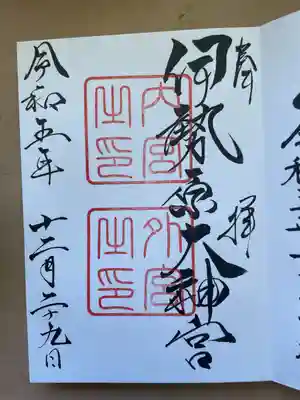 奉拝
伊勢原大神宮
内宮
之印
外宮
之印
令和五年
十二月二十九日